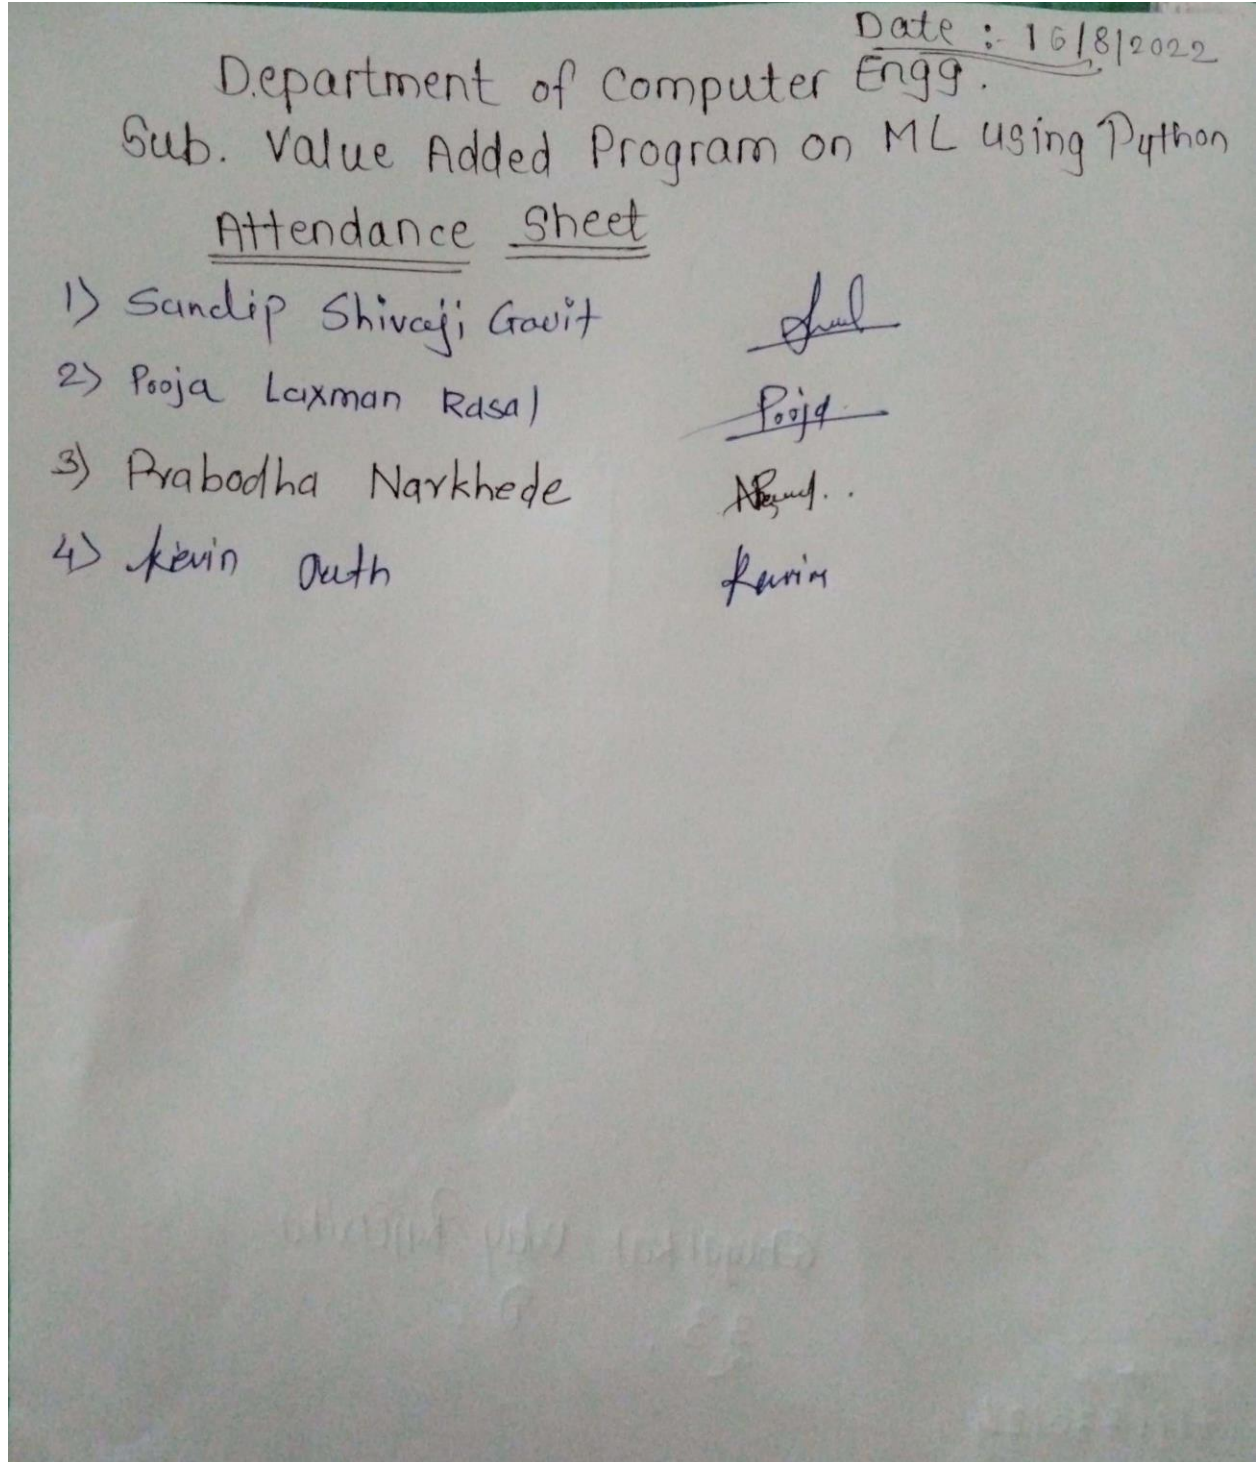 Date :- 16/8/2022
Department of Computer Engg.
Sub. Value Added Program on ML using Python
Attendance Sheet
1) Sandip Shivaji Gavit
2) Pooja Laxman Rasal Pooja
3) Prabodha Narkhede
4) Kevin Outh Kevin